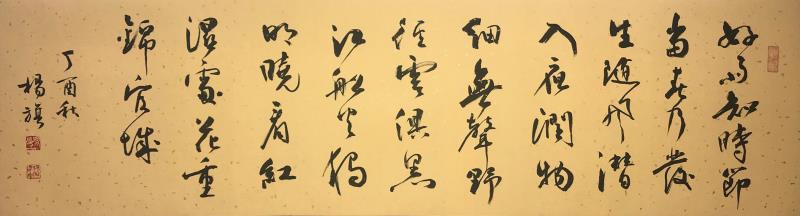 好雨知時節
當春乃發
生隨風潛
入夜潤物
細無聲野
徑雲俱黑
江船火獨
明曉看紅
濕處花重
錦官城
丁酉秋
楊旗